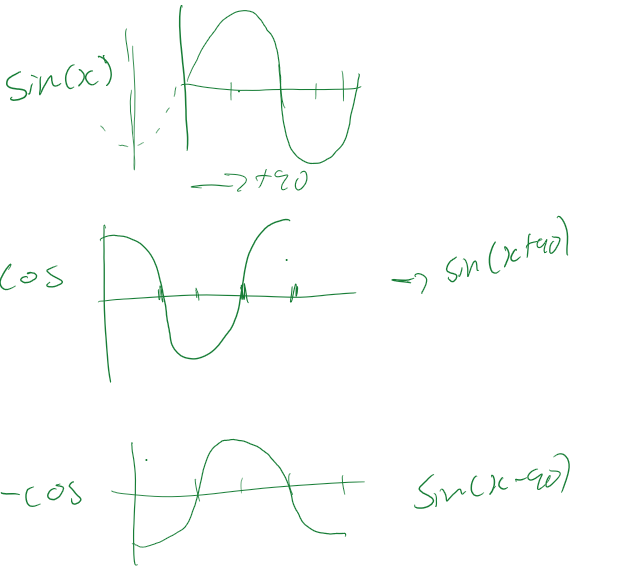 sin(x)
→ +90
cos → sin(x+90)
-cos sin(x-90)